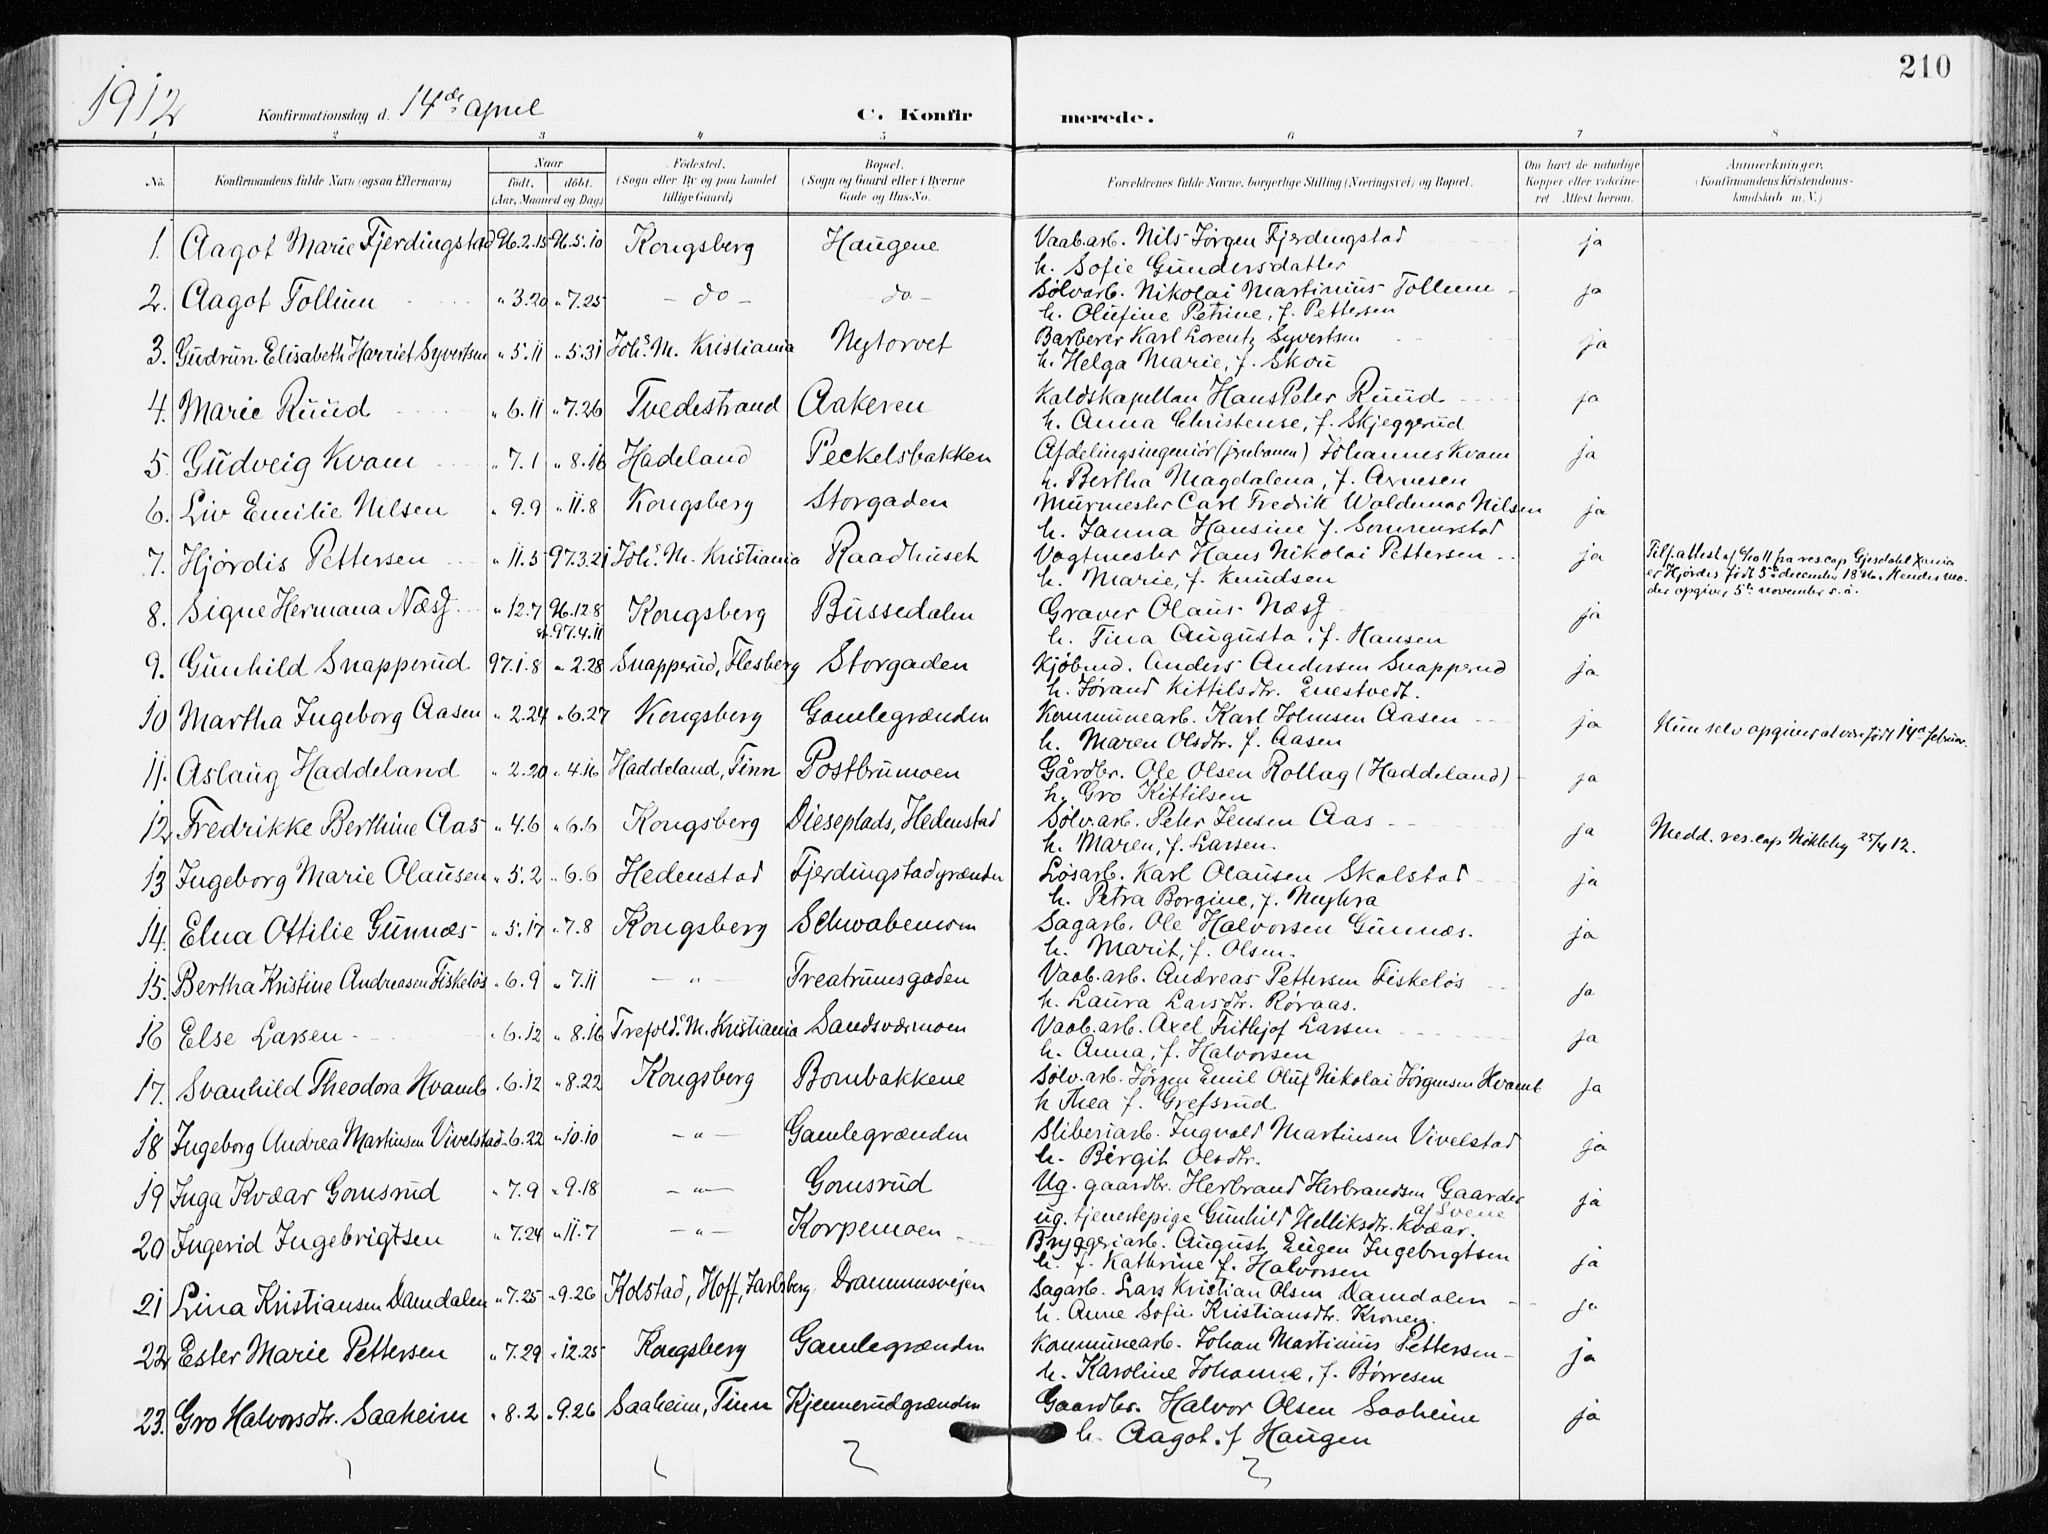 210
1912 Konfirmationsdag d. 14de april C. Konfirmerede.
1 2 3 4 5 6 7 8
No. Konfirmandens fulde Navn (ogsaa Efternavn) Naar født, døbt. (Aar, Maaned og Dag) Fødested. (Sogn eller By og paa Landet tillige Gaard) Bopæl. (Sogn og Gaard eller i Byerne Gade og Hus-No. Forældrenes fulde Navne, borgerlige Stilling (Næringsvei) og Bopæl. Om havt de naturlige Kopper eller vaccineret. Attest herom. Anmerkninger. (Konfirmandens Kristendomskundskab m. V.)
1. Aagot Marie Fjerdingstad 96.2.15 96.5.10 Kongsberg Haugene Vaab.arb. Nils Jørgen Fjerdingstad ja
h. Sofie Gundersdatter
2. Aagot Tollum " 3.20 " 7.25 - do - - do - Sølvarb. Nikolai Martinius Tollum ja
h. Olufine Petrine, f. Pettersen
3. Gudrun Elisabeth Harriet Syvertsen " 5.11 " 5.31 Johs. M. Kristiania Nytorvet Barberer Karl Lorentz Syvertsen ja
h. Helga Marie, f. Skou
4. Marie Ruud " 6.11 " 7.26 Tvedestrand Aakeren Kaldskapellan Hans Peter Ruud ja
h. Anna Christense, f. Skjeggerud
5. Gudveig Kvam " 7.1 " 8.16 Hadeland Peckelsbakken Afdelingsingeniør (jernbanen) Johannes Kvam ja
h. Bertha Magdalena, f. Arnesen
6. Liv Emilie Nilsen " 9.9 " 11.8 Kongsberg Storgaden Murmester Carl Fredrik Waldemar Nilsen ja
h. Janna Hansine f. Sommerstad
7. Hjørdis Pettersen " 11.5 97.3.21 Johs. M. Kristiania Raadhuset Vagtmester Hans Nikolai Pettersen ja Tilf. attest af fra res. cap. Gjesdahl Xania
h. Marie, f. Knudsen er Hjørdis født 5te december 1896. Hendes moder opgiver 5te november s. å.
8. Signe Hermana Næss " 12.7 96.12.8 Kongsberg Bussedalen Graver Olaus Næss ja
st. 97.4.11 h. Tina Augusta, f. Hansen
9. Gunhild Snapperud 97.1.8 " 2.28 Snapperud, Flesberg Storgaden Kjøbmd. Anders Andersen Snapperud ja
h. Jørand Kittilsdtr. Enestvedt.
10 Martha Ingeborg Aasen " 2.24 " 6.27 Kongsberg Gamlegrænden Kommunearb. Karl Johnsen Aasen ja Hun selv opgiver at være født 14de februar.
h. Maren Olsdtr. f. Aasen
11. Aslaug Haddeland " 2.20 " 4.16 Haddeland, Tinn Postbrumoen Gårdbr. Ole Olsen Rollag (Haddeland) ja
h. Gro Kittilsen
12 Fredrikke Berthine Aas " 4.6 " 6.6 Kongsberg Dieseplads, Hedenstad Sølv.arb. Peter Jensen Aas ja Medd. res. cap Nøkleby 25/4 12.
h. Maren, f. Larsen.
13 Ingeborg Marie Olausen " 5.2 " 6.6 Hedenstad Fjerdingstadgrænden Løsarb. Karl Olausen Skalstad ja
h. Petra Borgine, f. Myhra
14. Elna Ottilie Gunnæs " 5.17 " 7.8 Kongsberg Schwabemoen Sagarb. Ole Halvorsen Gunnæs. ja
h. Marit, f. Olsen.
15. Bertha Kristine Andreasen Fiskeløs " 6.9 " 7.11 - " - Treatrumsgaden Vaab.arb. Andreas Pettersen Fiskeløs ja
h. Laura Larsdtr. Røraas.
16 Else Larsen " 6.12 " 8.16 Trefolds. M. Kristiania Sandsværmoen Vaab.arb. Axel Frithjof Larsen ja
h. Anna, f. Halvorsen
17. Svanhild Theodora Hvamb " 6.12 " 8.22 Kongsberg Bombakkene Sølv.arb. Jørgen Emil Oluf Nikolai Jørgensen Hvamb ja
h Thea f. Grefsrud
18 Ingeborg Andrea Martinsen Vivelstad " 6.22 " 10.10 - " - Gamlegrænden Sliberiarb. Ingvald Martinsen Vivelstad ja
h. Birgit Olsdtr.
19 Inga Kvæar Gomsrud " 7.9 " 9.18 - " - Gomsrud Ug. gaardbr. Herbrand Herbrandsen Gaarder af Svene ja
ug. tjenestepige Gunhild Helliksdtr. Kvæar.
20 Ingerid Ingebrigtsen " 7.24 " 11.7 - " - Korpemoen Bryggeriarb. August Eugen Ingebrigtsen ja
h. f. Kathrine f. Halvorsen
21 Lina Kristiansen Damdalen " 7.25 " 9.26 Kolstad, Hoff, Jarlsberg Drammensvejen Sagarb. Lars Kristian Olsen Damdalen ja
h. Anne Sofie Kristiansdtr. Kronen.
22 Ester Marie Pettersen " 7.29 " 12.25 Kongsberg Gamlegrænden Kommunearb. Johan Martinius Pettersen ja
h. Karoline Johanne, f. Børresen
23. Gro Halvorsdtr. Saaheim " 8.2 " 9.26 Saaheim, Tinn Kjennerudgrænden Gaardbr. Halvor Olsen Saaheim ja
h. Aagot. f Haugen